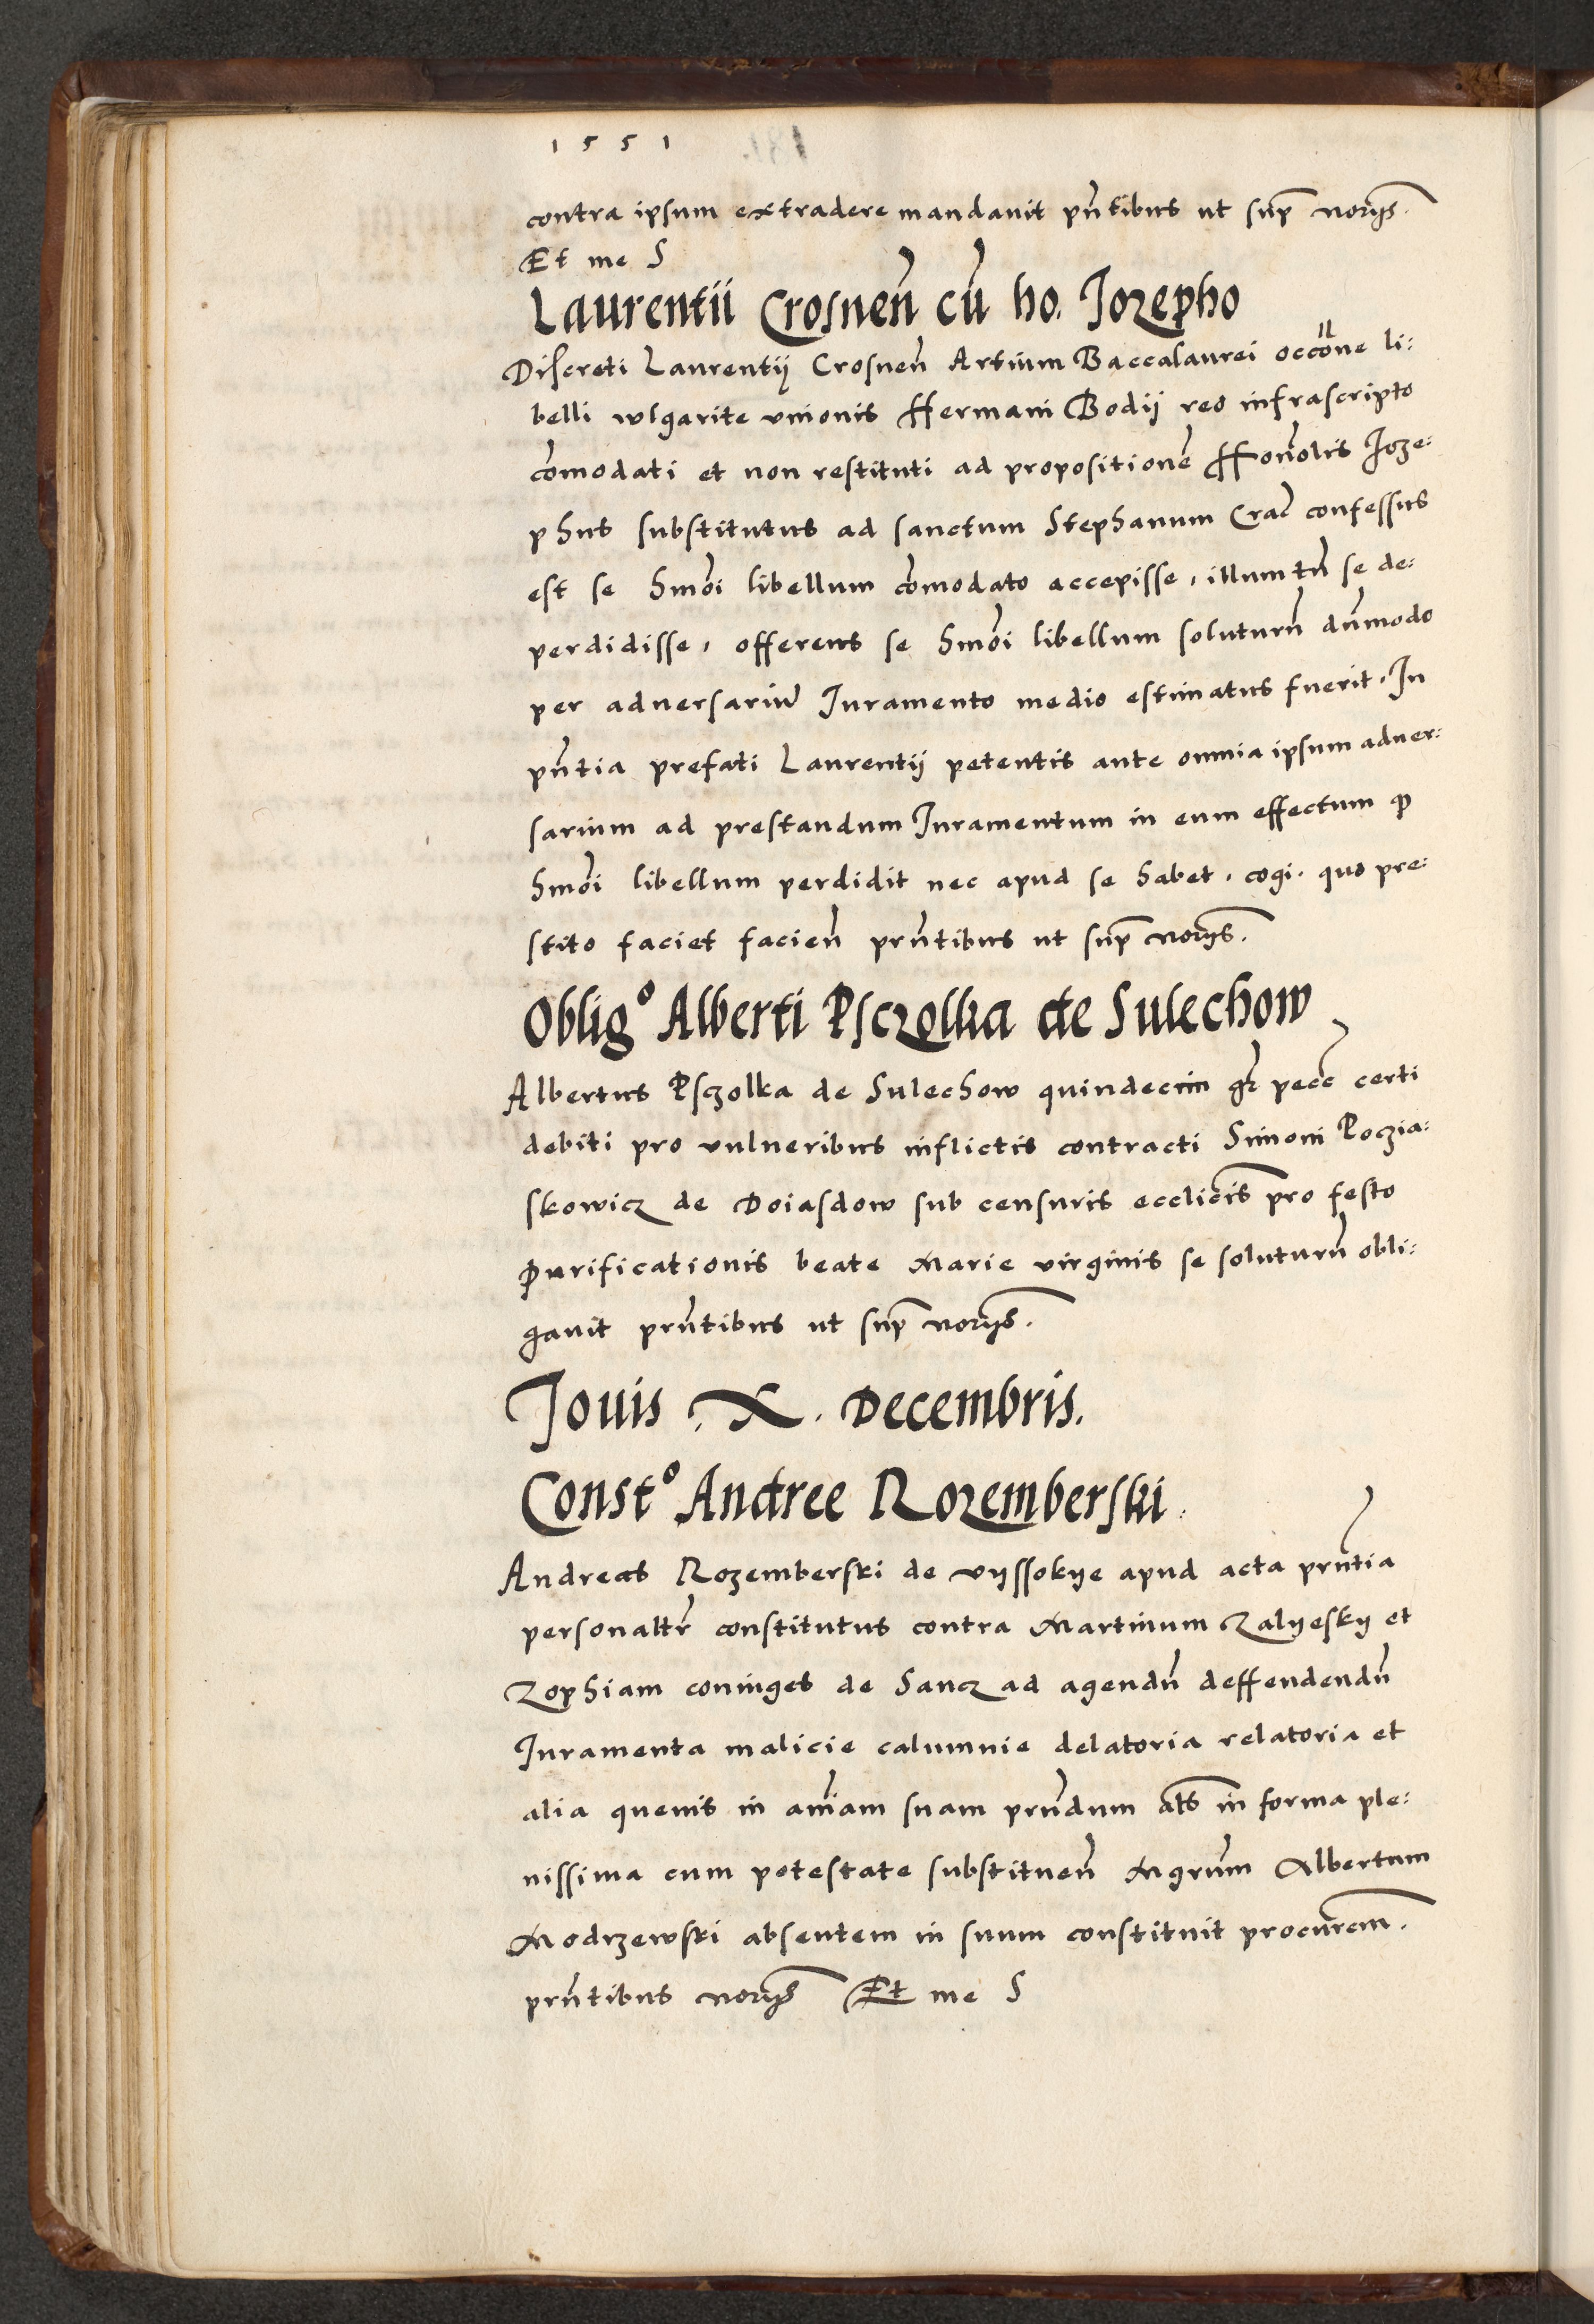 1551
contra ipsum extradere mandauit pñtibus ut sup̃ norijs.
Et me S
Laurentii Crosneñ cũ ho. Jozepho
Discreti Laurentij Crosneñ Artium Baccalaurei occõne li:
belli wlgarite vnionis Hermani Bodij reo infrascripto
cõmodati et non restituti ad propositionẽ Honõlis Joze:
phus substitutus ad sanctum Stephanum Crac̃ confessus
est se hmõi libellum cõmodato accepisse, illum tñ se de:
perdidisse, offerens se hmõi libellum soluturũ dũmodo
per aduersariũ Juramento medio estimatus fuerit. In
pñtia prefati Laurentij petentis ante omnia ipsum aduer:
sarium ad prestandum Juramentum in eum effectum ꝙ
hmõi libellum perdidit nec apud se habet, cogi. quo pre:
stito faciet facieñ prñtibus ut sup̃ norijs.
Obligº Alberti Psczolka de Sulechow
Albertus Psczolka de Sulechow quindecim gr̃ pecc̃ certi
debiti pro vulneribus inflictis contracti Simoni Poczia:
skowicz de Doiasdow sub censuris ecclic̃is pro festo
Purificationis beate Marie virginis se soluturũ obli:
gauit prñtibus ut sup̃ norijs.
Jouis .X. Decembris.
Constº Andree Rozemberski.
Andreas Rozemberski de vyssokye apud acta prñtia
personaltr̃ constitutus contra Martinum Zalyesky et
Zophiam coniuges de Sancz ad agendũ deffendendũ
Juramenta malicie calumnie delatoria relatoria et
alia queuis in aĩam suam prñdum alt̃s in forma ple:
nissima cum potestate substitueñ Mgrũm Albertum
Modrzewski absentem in suum constituit procurem̃.
prñtibus norijs Et me S